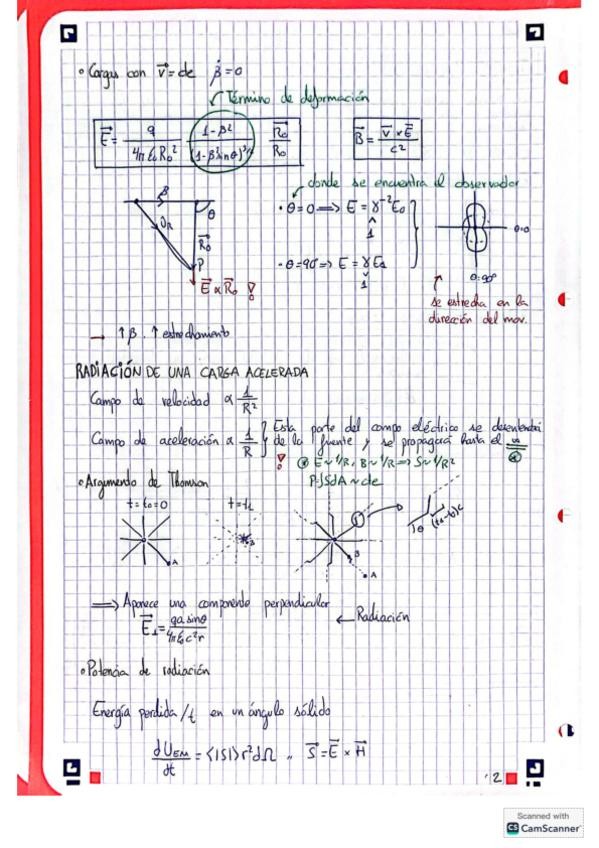 • Cargas con v⃗ = cte β̇ = 0
Término de deformación
E⃗ = q / 4πε₀R₀² (1-β²) / (1-β² sin θ)^3/2 R⃗₀ / R₀
B⃗ = v⃗ × E⃗ / c²
donde se encuentra el observador
β θ
• θ=0 ⟹ E = γ⁻²E₀
^
1
θ=0
R⃗₀
• θ=90º ⟹ E = γE₁
v
1
θ=90º
P
E⃗ ∝ R⃗₀ !
se estrecha en la
dirección del mov.
→ ↑β, ↑ estrechamiento
RADIACIÓN DE UNA CARGA ACELERADA
Campo de velocidad ∝ 1/R²
Campo de aceleración ∝ 1/R } Esta parte del campo eléctrico se desentenderá
de la fuente y se propagará hasta el ∞
! ⊛ E~1/R, B~1/R ⟹ S~1/R²
P=∫SdA ~ cte
• Argumento de Thomson
t = t₀ = 0 t = t₁
θ (t₁-t₀)c
A B B A
⟹ Aparece una componente perpendicular ← Radiación
E⃗⊥ = qa sinθ / 4πε₀c²r
• Potencia de radiación
Energía perdida/t en un ángulo sólido
dU_EM / dt = <|S|>r²dΩ ,, S⃗ = E⃗ × H⃗
2
Scanned with
CS CamScanner